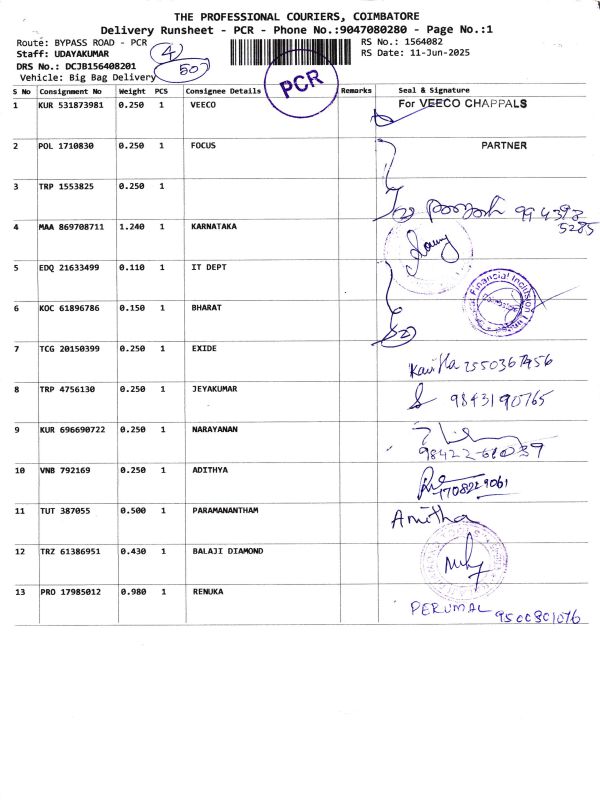 THE PROFESSIONAL COURIERS, COIMBATORE
Delivery Runsheet - PCR - Phone No.:9047080280 - Page No.:1
Route: BYPASS ROAD - PCR
RS No.: 1564082
Staff: UDAYAKUMAR
RS Date: 11-Jun-2025
DRS No.: DCJB156408201
Vehicle: Big Bag Delivery
4
507
PCR
S No Consignment No Weight PCS Consignee Details Remarks Seal & Signature
1 KUR 531873981 0.250 1 VEECO For VEECO CHAPPALS
2 POL 1710830 0.250 1 FOCUS PARTNER
3 TRP 1553825 0.250 1
99 4393
5285
4 MAA 869708711 1.240 1 KARNATAKA
5 EDQ 21633499 0.110 1 IT DEPT
Financial Inclusion
6 KOC 61896786 0.150 1 BHARAT
7 TCG 20150399 0.250 1 EXIDE
Kavitha 2550367456
8 TRP 4756130 0.250 1 JEYAKUMAR
9843190765
9 KUR 696690722 0.250 1 NARAYANAN
10 VNB 792169 0.250 1 ADITHYA
11 TUT 387055 0.500 1 PARAMANANTHAM Amitha
12 TRZ 61386951 0.430 1 BALAJI DIAMOND
13 PRO 17985012 0.980 1 RENUKA
PERUMAL 9500801076